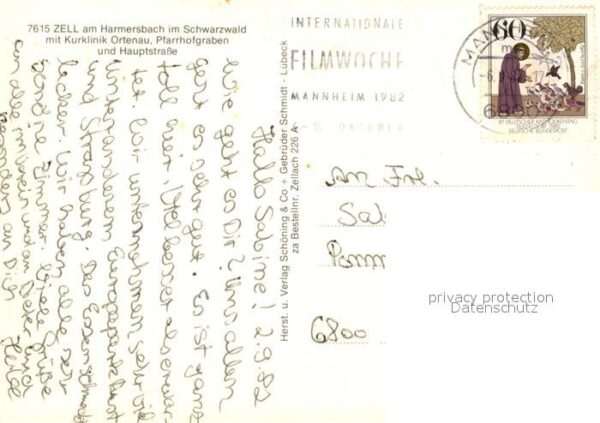 7615 ZELL am Harmersbach im Schwarzwald
mit Kurklinik Ortenau, Pfarrhofgraben
und Hauptstraße
INTERNATIONALE
FILMWOCHE
MANNHEIM 1982
- 9. OKTOBER
60
87. DEUTSCHER KATHOLIKENTAG
DÜSSELDORF 1982
DEUTSCHE BUNDESPOST
Herst. u. Verlag Schöning & Co + Gebrüder Schmidt - Lübeck
za Bestellnr. Zellach 226 A
Hallo Sabine! 2.9.82
wie geht es Dir? Uns allen
geht es sehr gut. Es ist ganz
toll hier. Viel besser als erwar-
tet. Wir unternehmen sehr viel
unter anderem Europapark Rust
und Straßburg. Das Essen schmeckt
lecker. Wir haben alle sehr
schöne Zimmer. Viele Grüße
an alle und an Deter und
besonders an Dich
Heike
An Frl.
Sab
Pomm
6800
privacy protection
Datenschutz